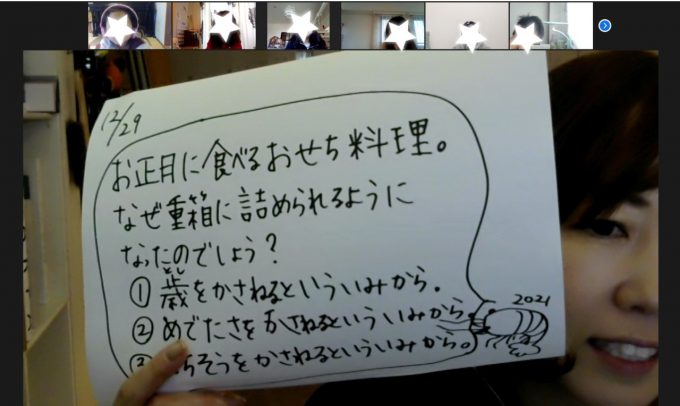 12/29
お正月に食べるおせち料理。
なぜ重箱に詰められるように
なったのでしょう？
とし
①歳をかさねるといういみから。
②めでたさをかさねるといういみから。
ちそうをかさねるといういみから。
2021